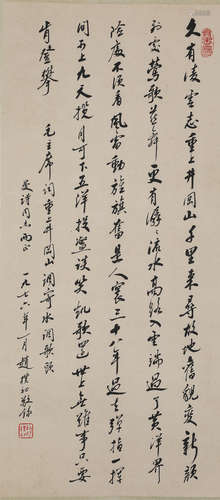 久有凌云志重上井冈山千里来寻故地旧貌变新颜
到处莺歌燕舞更有潺潺流水高路入云端过了黄洋界
险处不须看风雷动旌旗奋是人寰三十八年过去弹指一挥
间可上九天揽月可下五洋捉鳖谈笑凯歌还世上无难事只要
肯登攀
毛主席词重上井冈山调寄水调歌头
同志两正
一九七六年一月赵朴初敬录